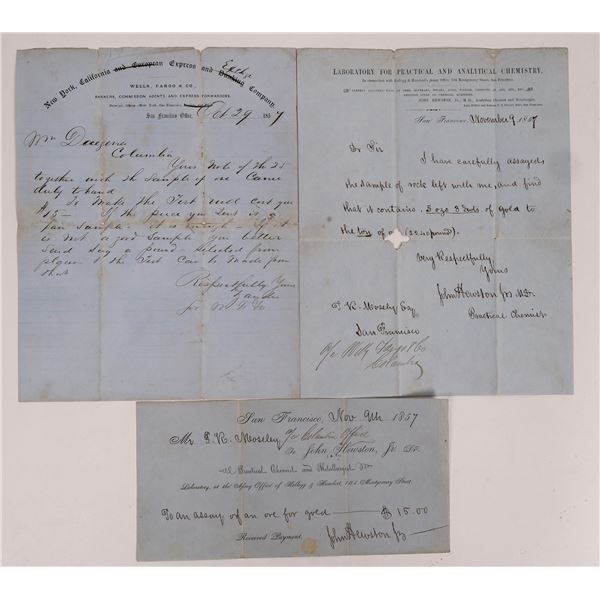 New York, California and European Express and Banking Exchge Company.
WELLS, FARGO & CO.,
BANKERS, COMMISSION AGENTS AND EXPRESS FORWARDERS.
San Francisco Office, Oct 29 1857
Mr
Columbia
Your Note of the 25
together with the Sample of ore Came
duly to hand
To Make the Test will cost you
$15 - If the piece you Sent is a
fair Sample it is enough - If it
is Not a good Sample you better
Send Say a pound selected from
& the Test Can be Made from
that
Respectfully Yours
for W F & Co
LABORATORY FOR PRACTICAL AND ANALYTICAL CHEMISTRY.
In connection with Kellogg & Humbert's Assay Office 104 Montgomery Street, San Francisco.
San Francisco, November 9 1857
Dr Sir
I have carefully assayed
the sample of rock left with me, and find
that it contains 5 ozs 3 dwts of gold to
the ton of (2240 pound).
Very Respectfully,
Yours
John Hewston Jr M.D.
Practical Chemist
P. K. Mosely Esq
San Francisco
c/o Wells Fargo & Co
Columbia
San Francisco, Nov 9th 1857
Mr P. K. Moseley c/o Columbia Office
To John Hewston, Jr. Dr.
Practical Chemist and Metallurgist
Laboratory, at the Assay Office of Kellogg & Humbert, 104 Montgomery Street
To an assay of an ore for gold $15.00
Received Payment, John Hewston Jr